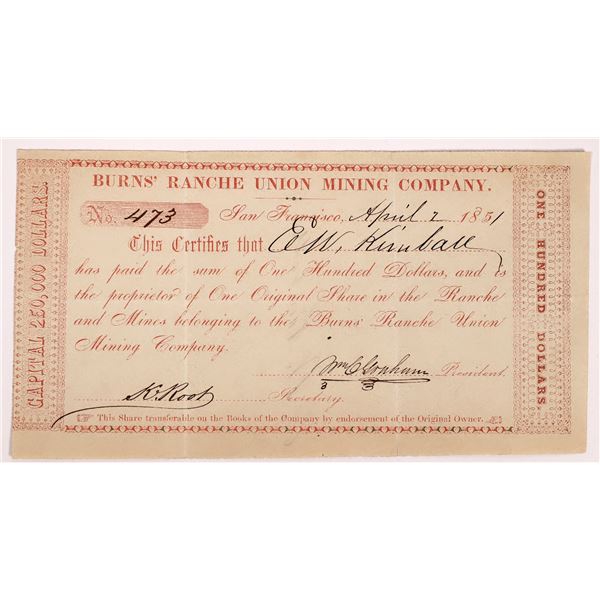 BURNS' RANCHE UNION MINING COMPANY.
No. 473 San Francisco, April 2 1851
This Certifies that E. W. Kimball
has paid the sum of One Hundred Dollars, and is
the proprietor of One Original Share in the Ranche
and Mines belonging to the Burns' Ranche Union
Mining Company.
Wm C Graham President.
3 3
K. Root Secretary.
This Share transferable on the Books of the Company by endorsement of the Original Owner.
CAPITAL 250,000 DOLLARS.
ONE HUNDRED DOLLARS.